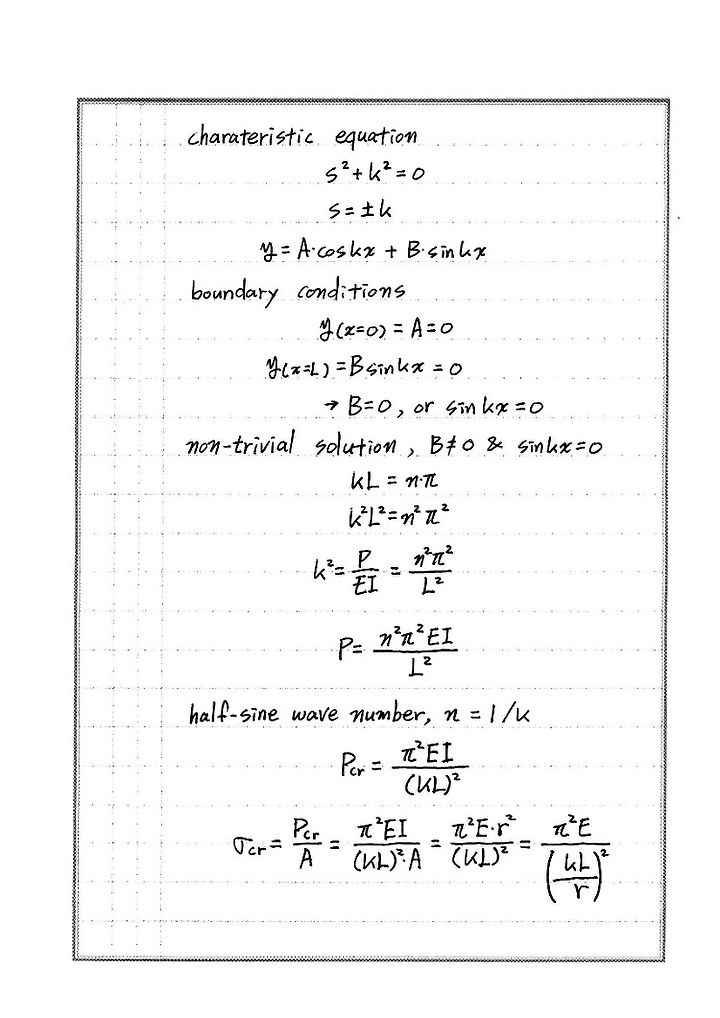 charateristic equation
s²+k²=0
s=±k
y=A·coskx + B·sinkx
boundary conditions
y(x=0) = A=0
y(x=L) =Bsinkx =0
→ B=0, or sinkx=0
non-trivial solution, B≠0 & sinkx=0
kL = n·π
k²L²=n²π²
k²= P/EI = n²π²/L²
P= n²π²EI/L²
half-sine wave number, n = 1/K
Pcr = π²EI/(KL)²
σcr= Pcr/A = π²EI/(KL)²·A = π²E·r²/(KL)² = π²E/(KL/r)²